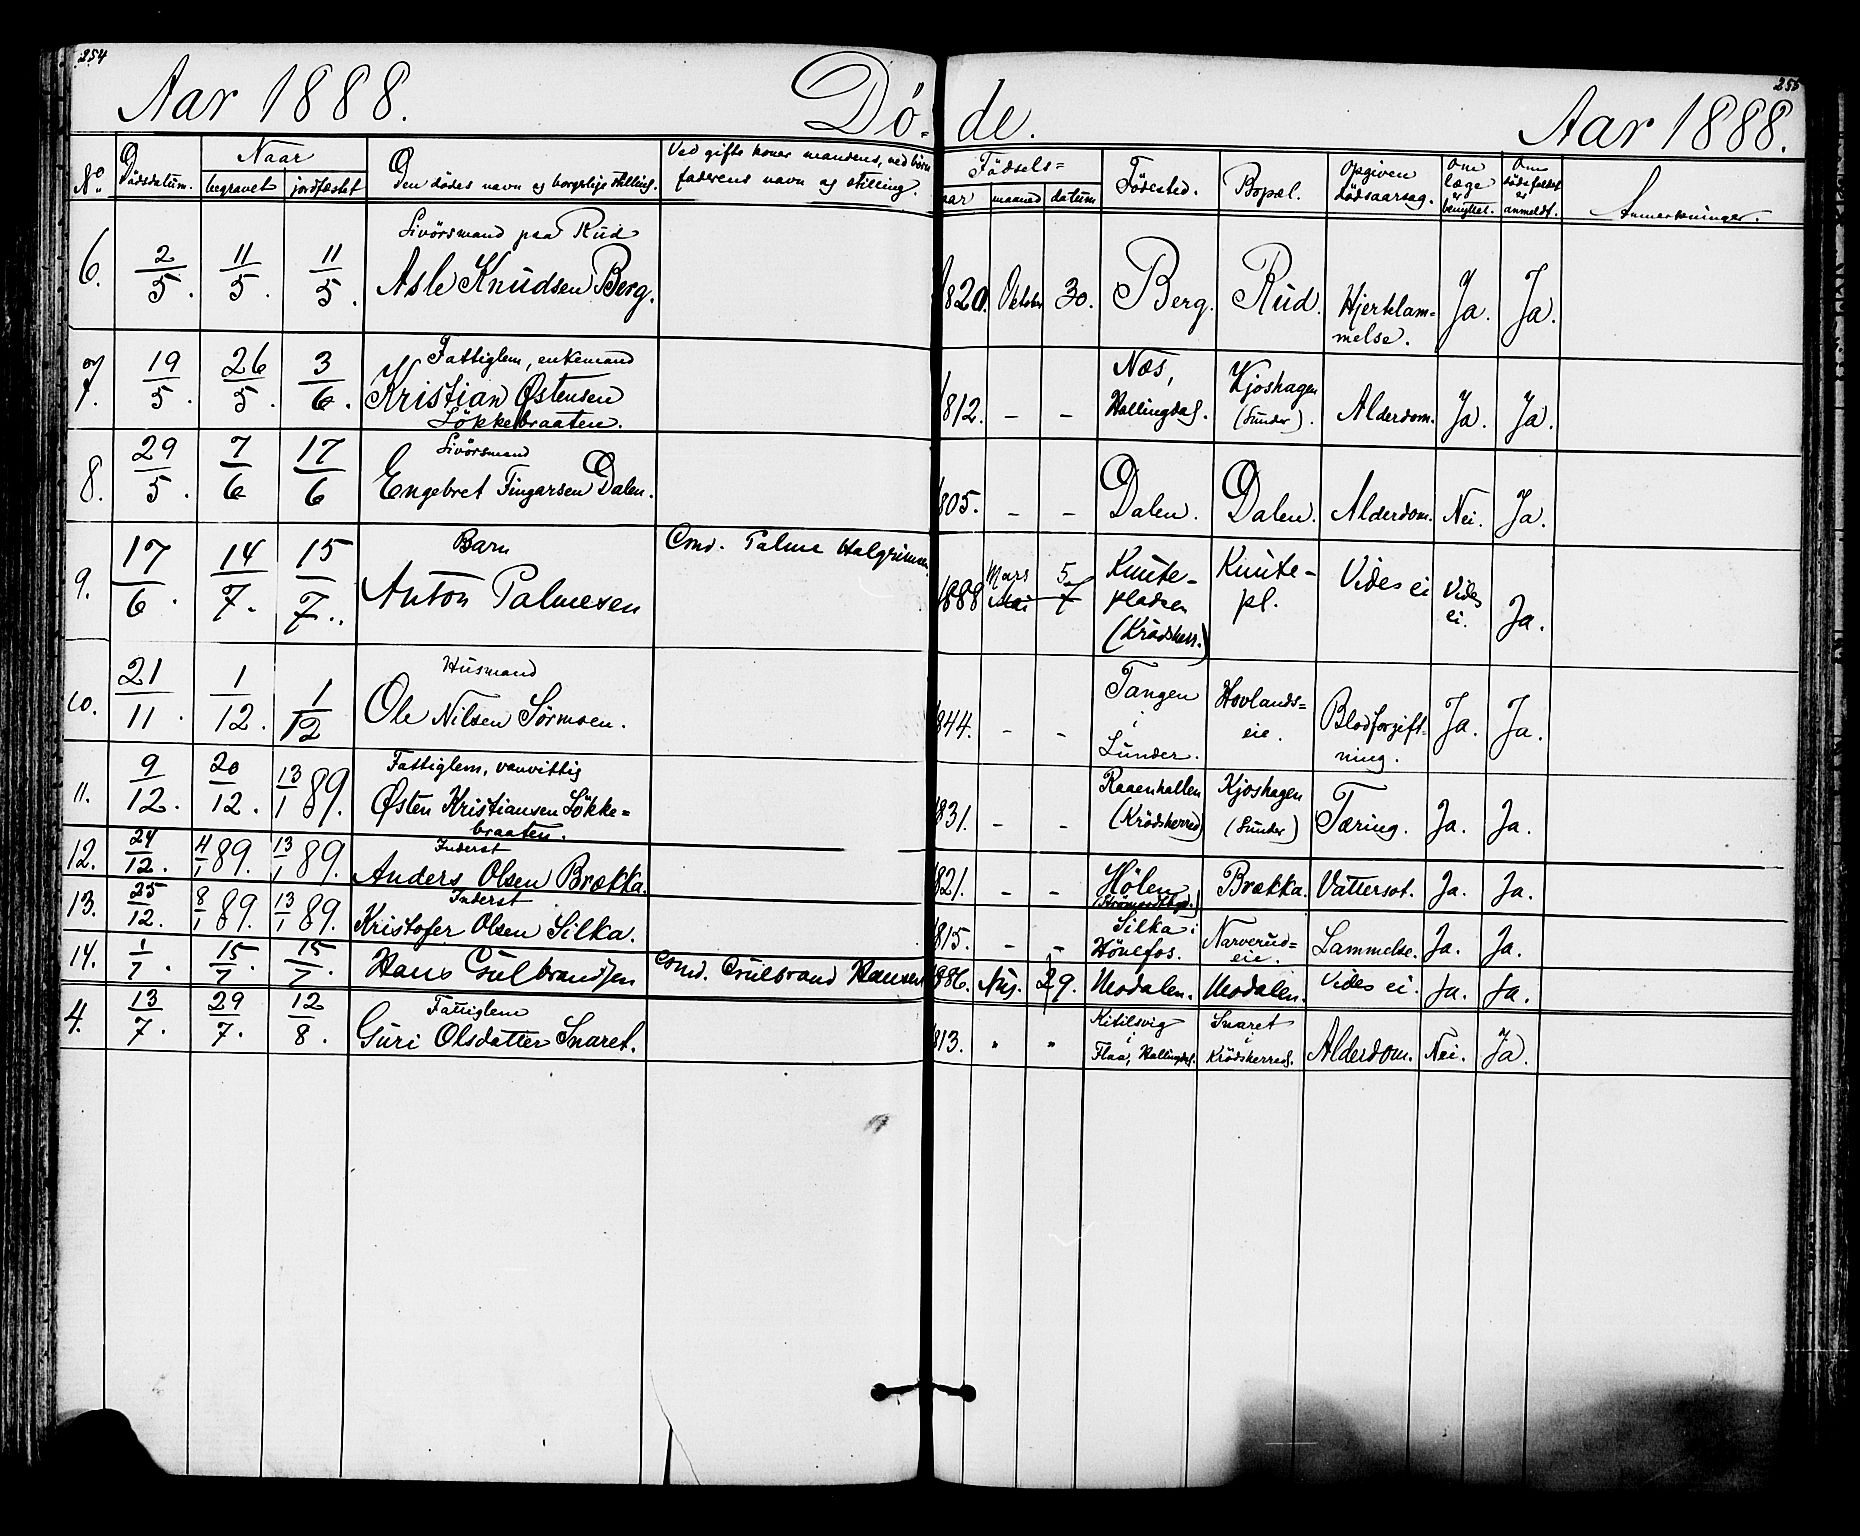 254
255
Aar 1888.
Dö-
de.
Aar 1888.
No
Dödsdatum.
Naar
begravet
jordfæstet
Den dödes navn og borgerlige stilling.
Ved gifte koner mandens, ved börn
faderens navn og stilling.
Födsels=
aar
maaned
datum
Födested.
Bopæl.
Opgiven
dödsaarsag.
Om
læge
er
benyttet.
Om
dödsfaldet
er
anmeldt.
Anmerkninger.
6. 2/5. 11/5. 11/5. Livörsmand paa Rud
Asle Knudsen Berg. 1820. Oktober 30. Berg. Rud. Hjerteklam=
melse. Ja. Ja.
7. 19/5. 26/5. 3/6. Fattiglem, enkemand
Kristian Østensen
Lökkebraaten. 1812. – – Næs,
Hallingdal. Kjoshagen
(Lunder). Alderdom. Ja. Ja.
8. 29/5. 7/6 17/6 Livörsmand
Engebret Fingarsen Dalen. 1805. – – Dalen. Dalen. Alderdom. Nei. Ja.
9. 17/6. 14/7. 15/7. Barn
Anton Palmesen Gmd. Palme Halgrimsen. 1888 Mars 5
Mai 7 Knute-
pladsen
(Krödsherr.) Knute-
pl. Vides ei Vides
ei. Ja.
10. 21/11. 1/12. 1/12 Husmand
Ole Nilsen Sörmoen. 1844. – – Tangen
i
Lunder. Hovlands=
eie. Blodforgift-
ning. Ja. Ja.
11. 9/12. 20/12. 13/1 89. Fattiglem, vanvittig
Østen Kristiansen Lökke=
braaten. 1831. – – Raaenhallen
(Krödsherred) Kjoshagen
(Lunder) Tæring. Ja. Ja.
12. 24/12. 4/1 89. 13/1 89. Inderst
Anders Olsen Brækka. 1821. – – Hölen
Brækka. Vattersot. Ja. Ja.
13. 25/12. 8/1 89. 13/1 89. Inderst
Kristofer Olsen Silka. 1815. – – Silka i
Hönefos. Narverud=
eie. Lammelse. Ja. Ja.
14. 1/7. 15/7. 15/7. Hans Gulbrandsen Gmd. Gulbrand Hansen 1886. Aug. 29. Modalen. Modalen. Vides ei. Ja. Ja.
4. 13/7. 29/7. 12/8. Fattiglem
Guri Olsdatter Snaret. 1813. " " Kitilsvig
i
Flaa, Hallingdal. Snaret
i
Krödsherred. Alderdom. Nei. Ja.